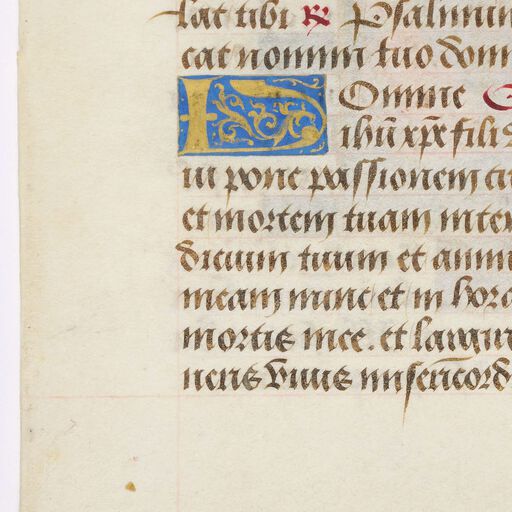 lat tibi ℟ Psalmum
cat nomini tuo domi
Domine
ihũ xp̃e fili
in pone passionem tu
et mortem tuam inter
dicium tuum et anim
meam nunc et in hora
mortis mee. et largir
neris viuis misericord